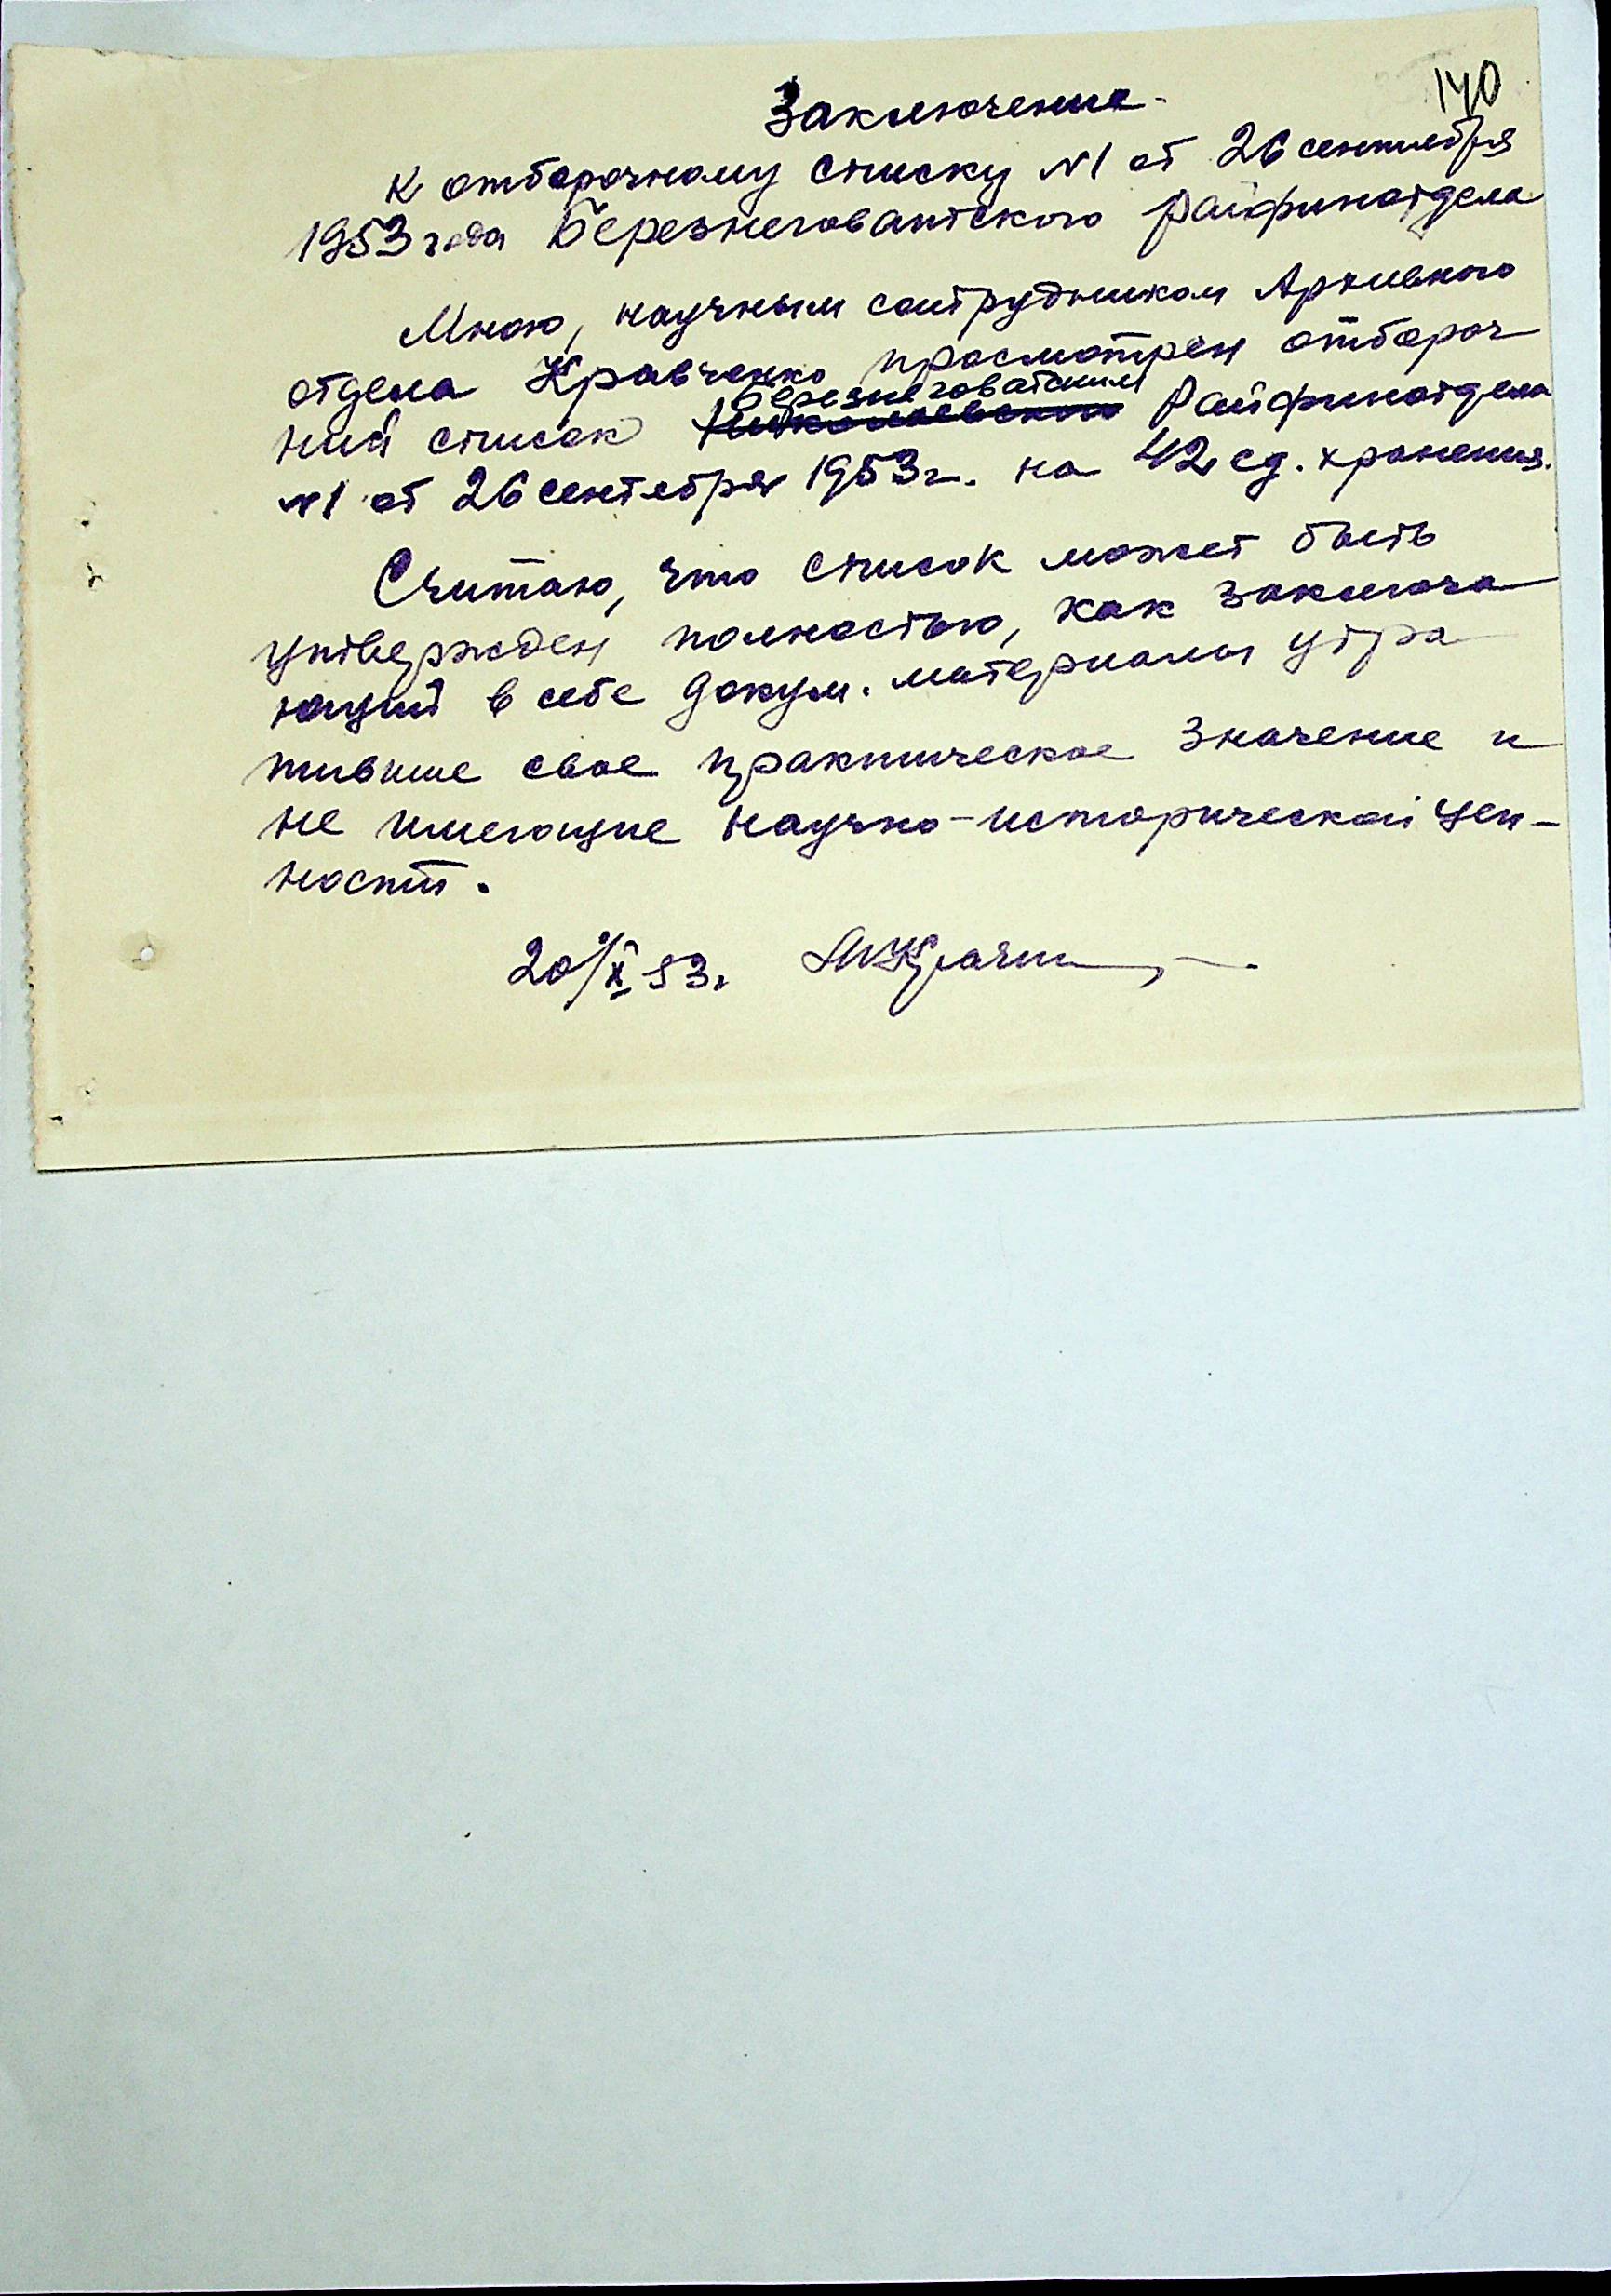 140
Заключение.
к отборочному списку №1 от 26 сентября
1953 года Березнеговатского райфинотдела
Мною, научным сотрудником Архивного
отдела Кравченко просмотрен отбороч
ный список Березнеговатским Райфинотдела
№1 от 26 сентября 1953 г. на 42 ед. хранения.
Считаю, что список может быть
утвержден полностью, как заключа
ющий в себе докум. материалы утра
тившие свое практическое значение и
не имеющие научно-исторической цен-
ности.
20/X 53 г.